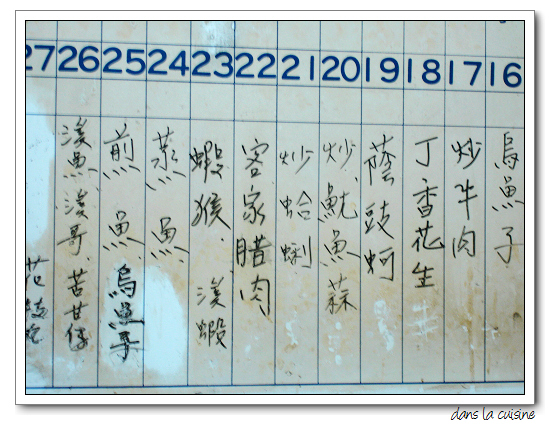 27 26 25 24 23 22 21 20 19 18 17 16
烏魚子
炒牛肉
丁香花生
蔭豉蚵
炒魷魚蒜
炒蛤蜊
客家腊肉
蝦猴、溪蝦
蒸魚
煎魚 烏魚子
溪魚、溪哥、苦甘仔
dans la cuisine